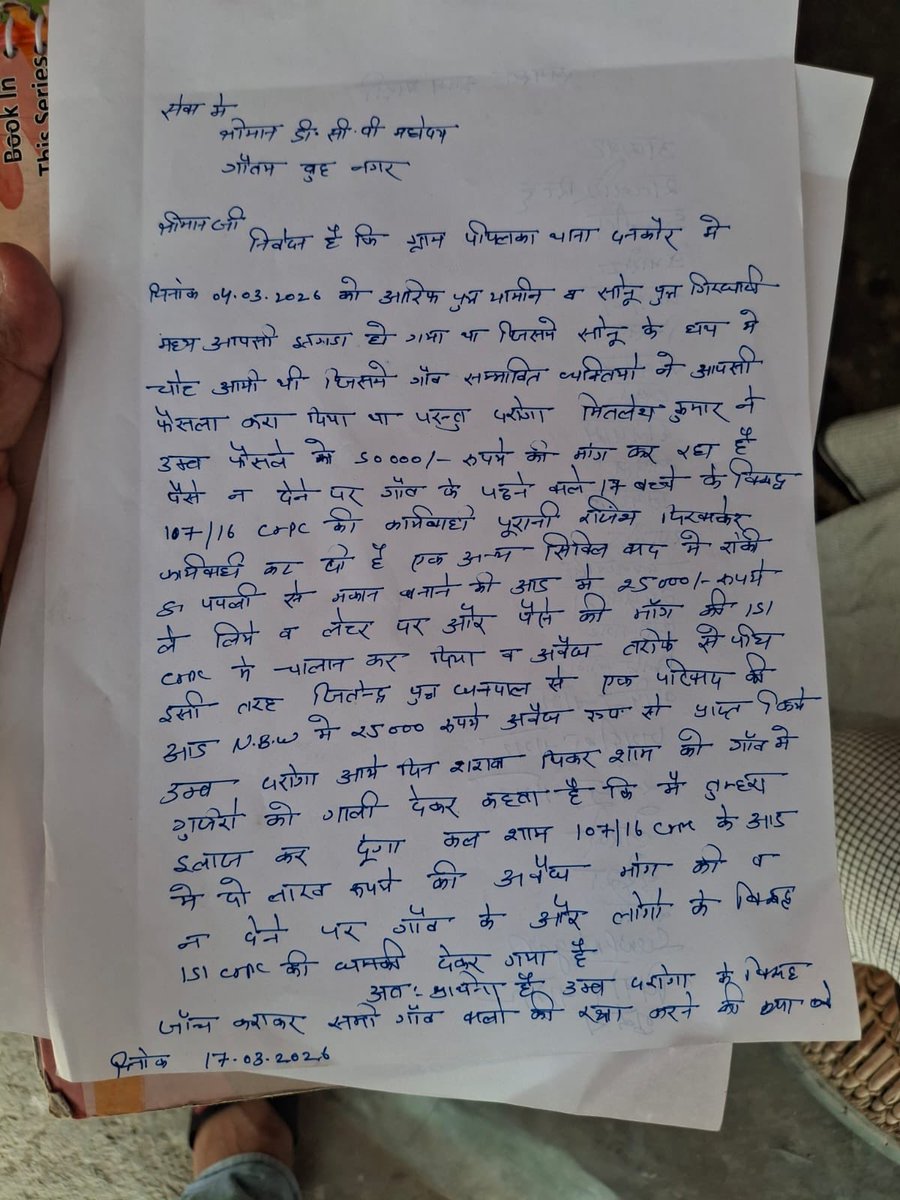 Book In
This Series
सेवा मे
श्रीमान डी. सी. पी महोदय
गौतम बुद्ध नगर
श्रीमान जी
निवेदन है कि ग्राम पीपलका थाना दनकौर मे
दिनांक 04.03.2026 को आरिफ पुत्र यामीन व सोनू पुत्र गिरधारी
मध्य आपसी झगडा हो गया था जिसमे सोनू के हाथ मे
चोट आयी थी जिसमे गाँव सम्भावित व्यक्तियो ने आपसी
फैसला करा दिया था परन्तु दरोगा मितलेश कुमार ने
उक्त फैसले के 50000/- रुपये की मांग कर रहा है
पैसे न देने पर गाँव के पढने वाले 17 बच्चे के विरूद्ध
107/16 crpc की कार्यवाही पूरानी रंजिश दिखाकर
कार्यवाही कर दी है एक अन्य सिविल वाद मे
पपली से मकान बनाने की आड मे 25000/- रुपये
ले लिये व लेंटर पर और पैसे की माँग की 151
crpc मे चालान कर दिया व अवैध तरीके से पीटा
इसी तरह जितेन्द्र पुत्र धनपाल से एक परिवाद की
आड N.B.W मे 25000 रुपये अवैध रुप से प्राप्त किये
उक्त दरोगा आये दिन शराब पिकर शाम को गाँव मे
गुर्जरो को गाली देकर कहता है कि मै तुम्हारा
इलाज कर दूंगा कल शाम 107/16 crpc के आड
मे दो लाख रूपये की अवैध मांग की व
न देने पर गाँव के और लोगो के विरूद्ध
151 crpc की धमकी देकर गया है
अतः प्रार्थना है उक्त दरोगा के विरूद्ध
जाँच कराकर सभी गाँव वालो की रक्षा करने की कृपा करे
दिनांक 17.03.2026